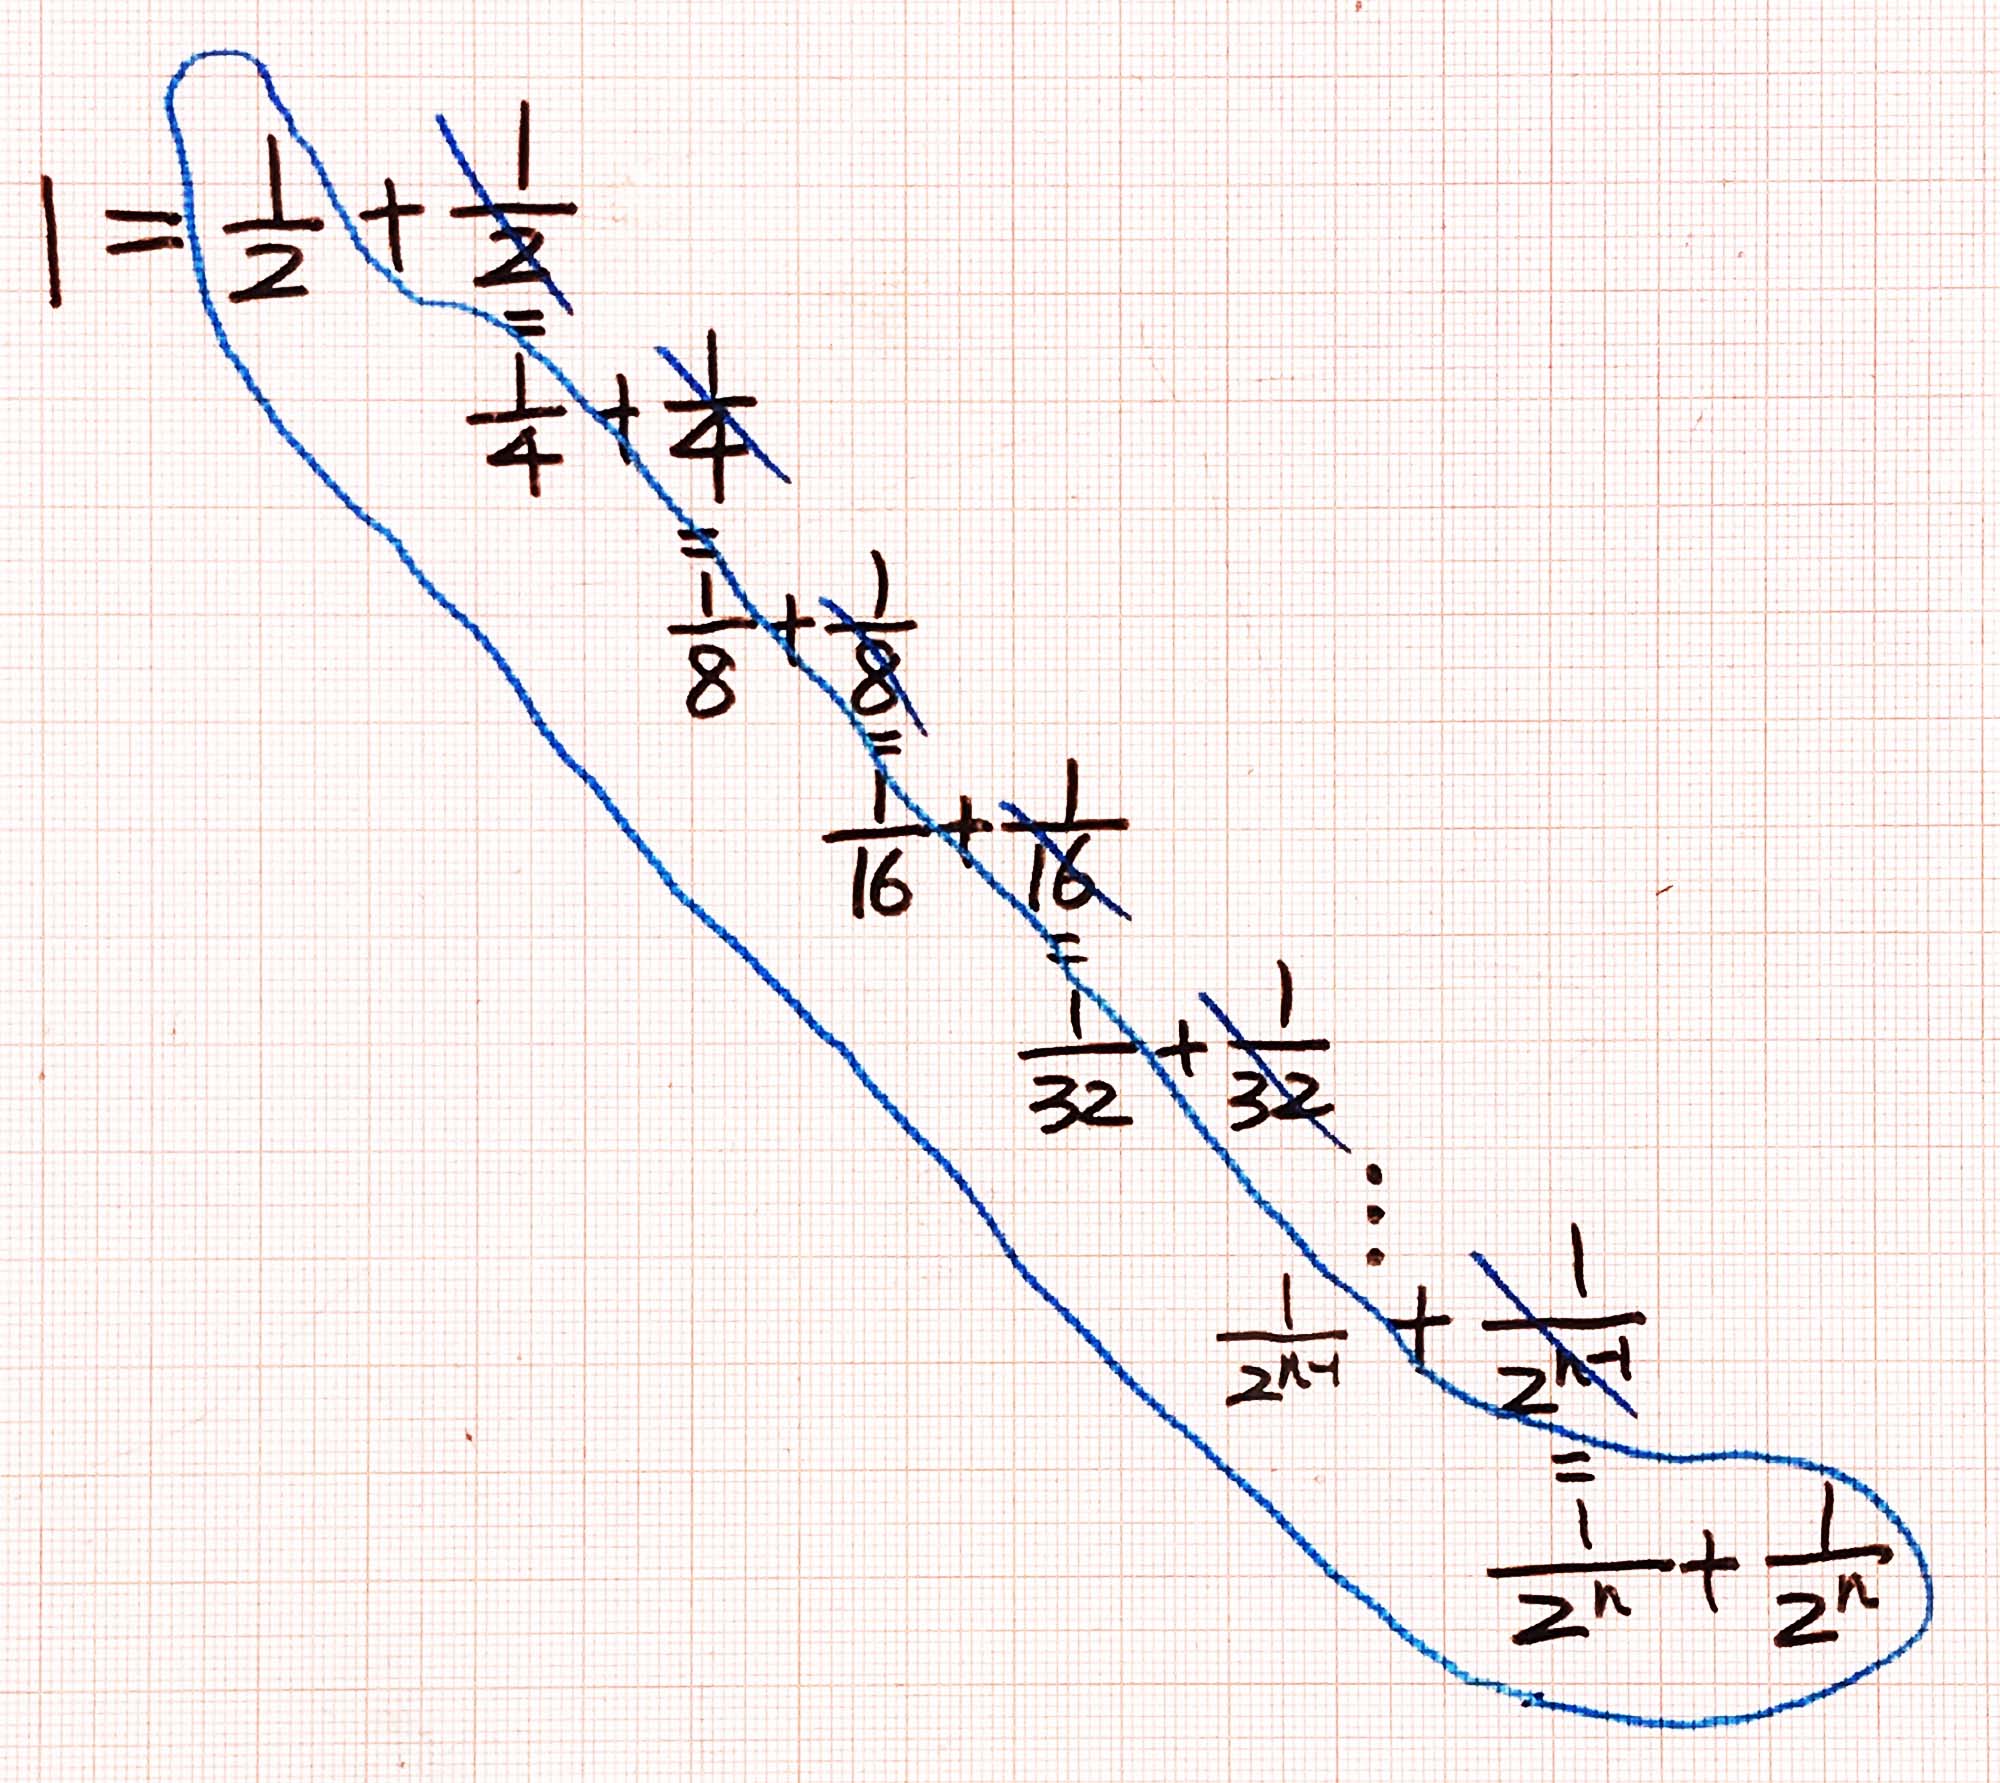 1 = 1/2 + 1/2
=
1/4 + 1/4
=
1/8 + 1/8
=
1/16 + 1/16
=
1/32 + 1/32
⋮
1/2^(n-1) + 1/2^(n-1)
=
1/2^n + 1/2^n